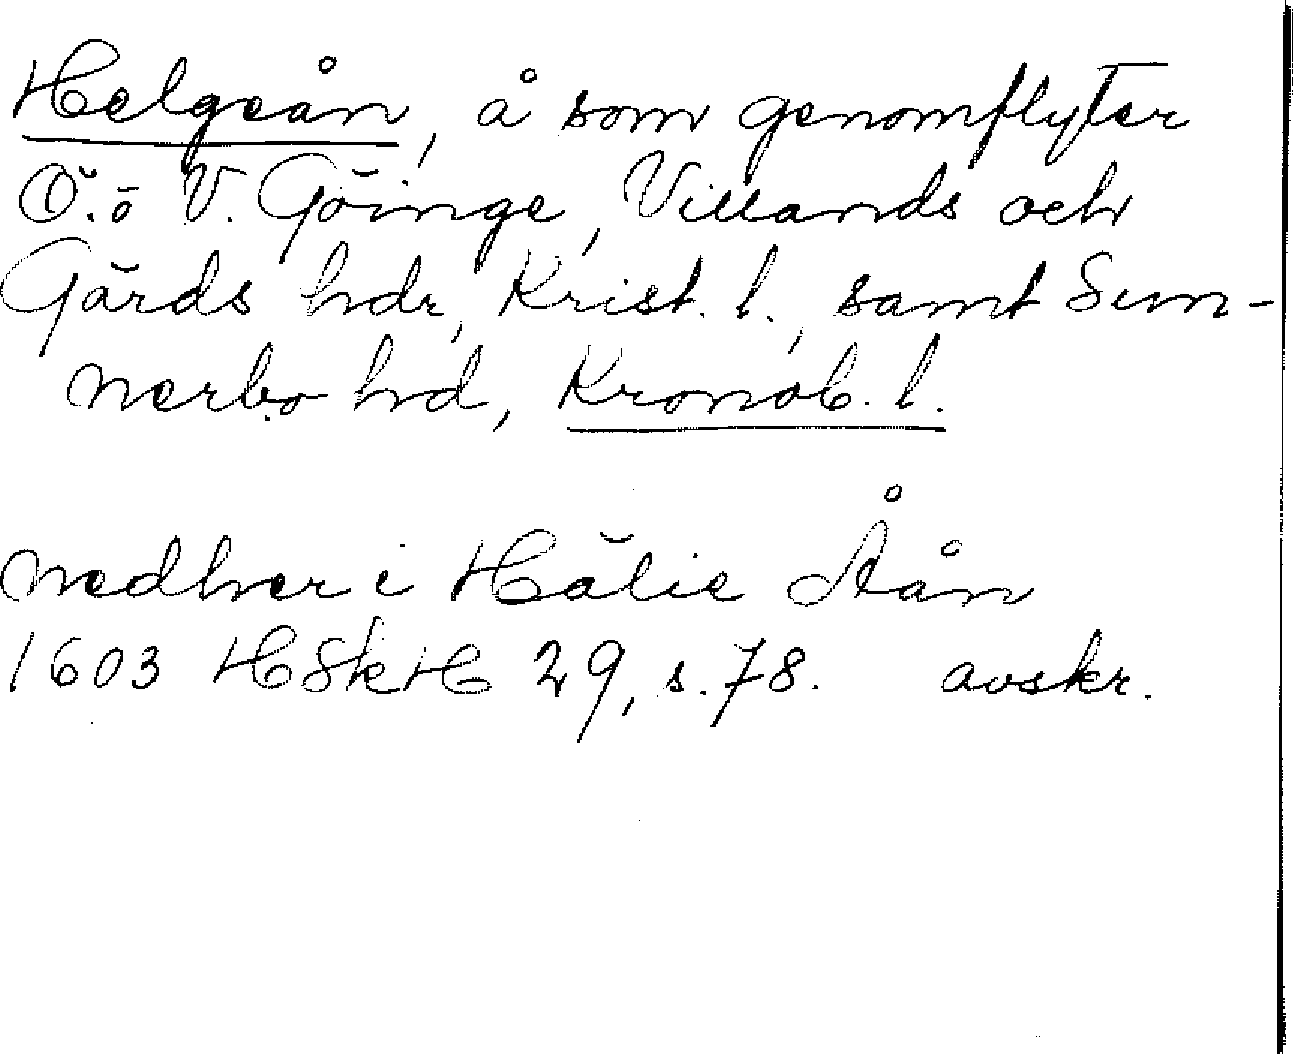 Helgeån, å som genomflyter
Ö. o V. Göinge, Villands och
Gärds hdr, Krist. l., samt Sun-
nerbo hd, Kronob. l.
nedher i Hälie Åån
1603 HSkH 29, s. 78. avskr.